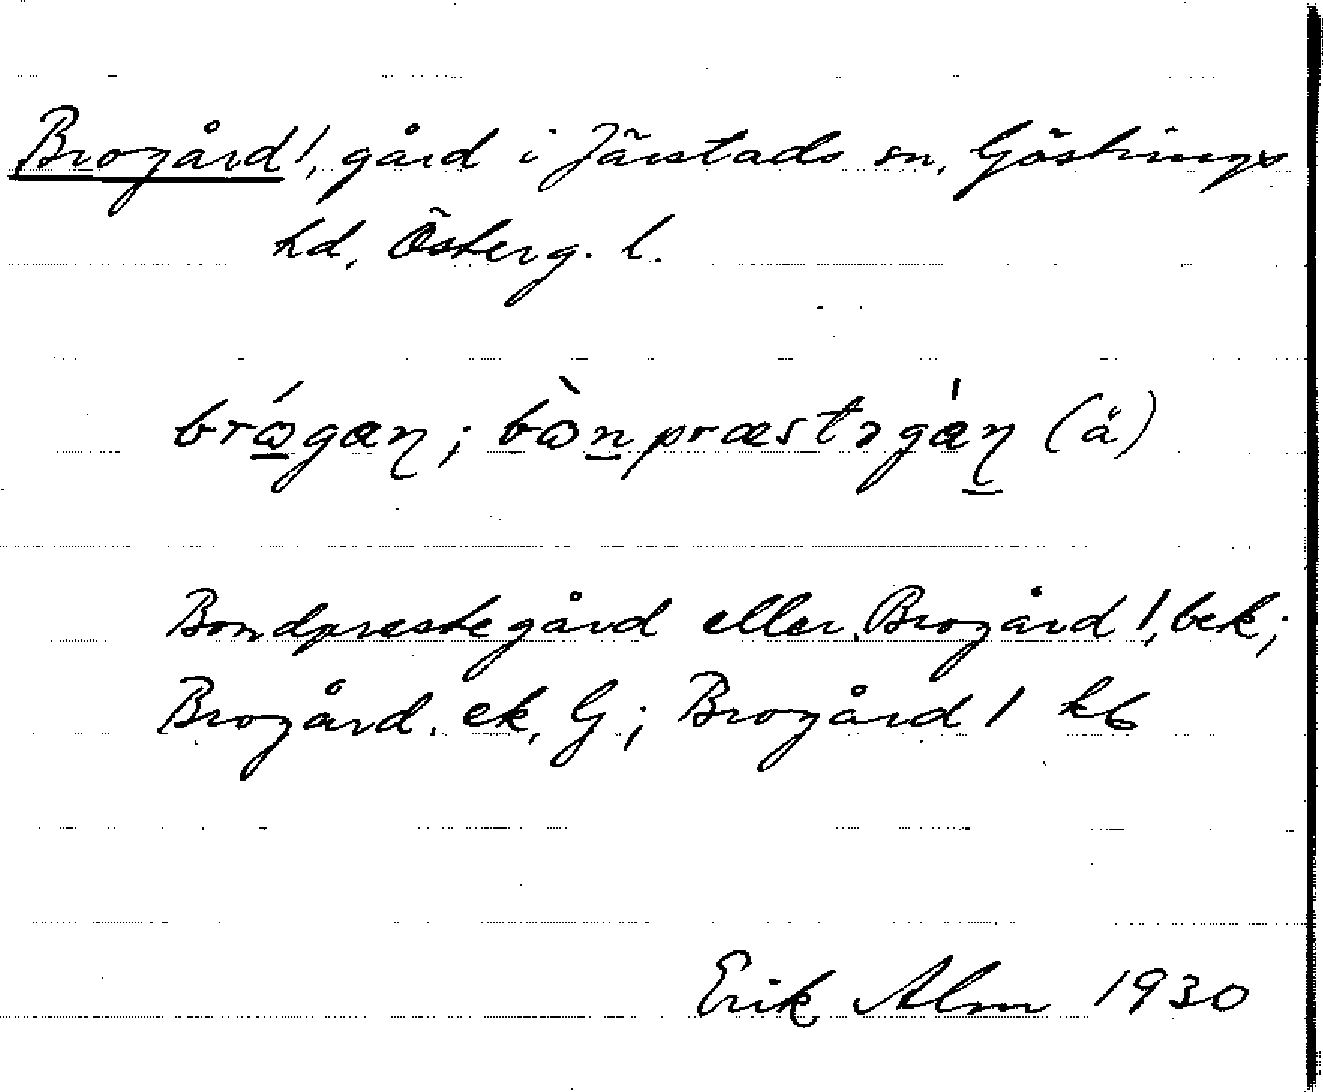 Brogård!, gård i Järstads sn, Göstrings
hd, Österg. l.
brǿgæɳ; bònpræstəgæ̀ɳ (å)
Bondprestegård eller Brogård!, bek;
Brogård. ek, G; Brogård! kb
Erik Alm 1930